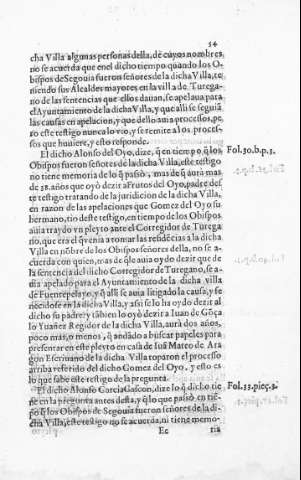 14
cha Villa algunas personas della, de cuyos nombres
no se acuerda que en el dicho tiempo quando los O-
bispos de Segouia fueron señores de la dicha Villa, te-
niendo sus Alcaldes mayores en la villa de Turega-
no de las sentencias que ellos dauan, se apelaua para
el Ayuntamiento de la dicha Villa, y que alli se seguiā
las causas en apelacion, y que dello aurà processos, pe-
ro este testigo nunca lo vio, y se remite a los proces-
sos que huuiere, y esto responde.
El dicho Alonso del Oyo, dize, q̄ en tiempo q̄ los
Obispos fueron señores de la dicha Villa, este testigo
no tiene memoria de lo q̄ passò, mas de q̄ aurà mas
de 28. años que oyò dezir a Frutos del Oyo, padre des-
te testigo tratando de la juridicion de la dicha Villa,
en razon de las apelaciones que Gomez del Oyo su
hermano, tio deste testigo, en tiempo de los Obispos
auia traydo vn pleyto ante el Corregidor de Turega
no, que era el q̄ venia a tomar las residēcias a la dicha
Villa en nōbre de los Obispos señores della, no se a-
cuerda con quico, mas de q̄ le auia oydo dezir que de
la sentencia del dicho Corregidor de Turegano, se a-
uia apelado para el Ayuntamiento de la dicha villa
de Fuentepelayo, y q̄ alli se auia litigado la causa, y fe
necidose en la dicha Villa, y assi se lo ha oydo dezir al
dicho su padre y tābien lo oyò dezir a Iuan de Goça
lo Yuañez Regidor de la dicha Villa, aurà dos años,
poco mas, o menos, q̄ andādo a buscar papeles para
presentar en este pleyto en casa de Iuā Mateo de Ara
gon Escriuano de la dicha Villa toparon el processo
arriba referido del dicho Gomez del Oyo, y esto es
lo que sabe este testigo de la pregunta.
El dicho Alonso Garcia Gascon, dize lo q̄ dicho tie
ne en la pregunta antes desta, y q̄ lo que passò en tiē-
po q̄ los Obispos de Segouia fueron señores de la di-
cha Villa, este testigo no se acuerda, ni tiene memo-
Ee ria
Fol.30.b.p.3.
Fol.33.pieç.3.